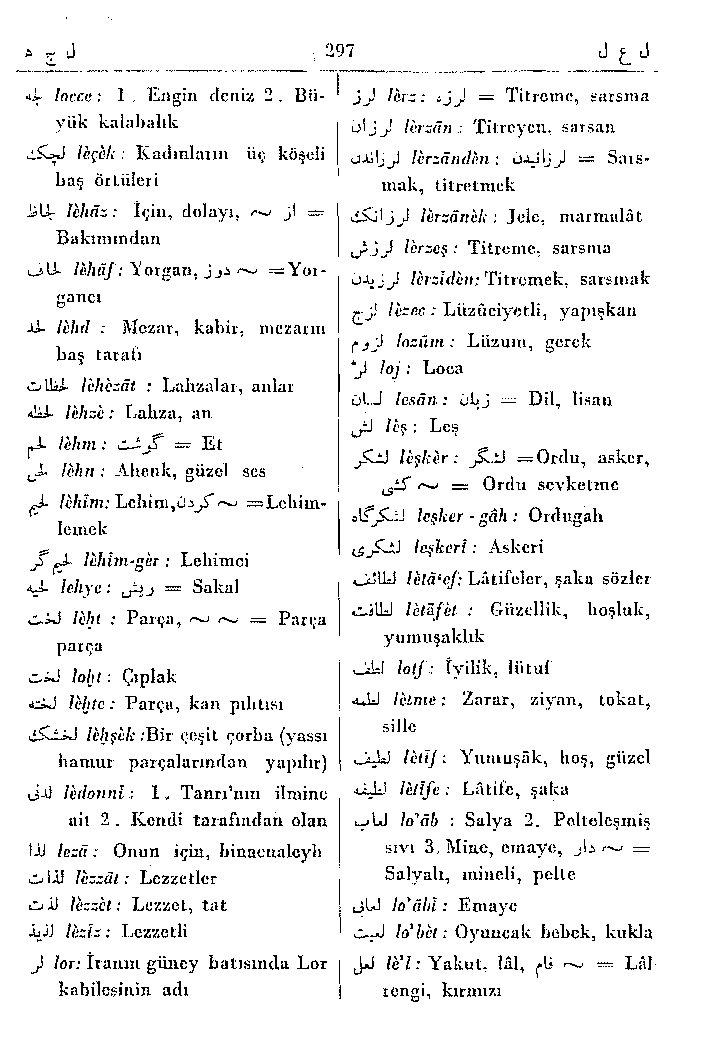 ل ج ه
297
ل ع ل
لجه locce : 1 . Engin deniz 2 . Bü-
yük kalabalık
لچک lèçèk : Kadınların üç köşeli
baş örtüleri
لحاظ lèhāz : İçin, dolayı, ~ از =
Bakımından
لحاف lèhāf : Yorgan, دوز ~ =Yor-
gancı
لحد lèhd : Mezar, kabir, mezarın
baş tarafı
لحظات lèhèzāt : Lahzalar, anlar
لحظه lèhzè : Lahza, an
لحم lèhm : گوشت = Et
لحن lèhn : Ahenk, güzel ses
لحیم lèhîm: Lehim, کردن ~ =Lehim-
lemek
لحیم گر lèhîm-gèr : Lehimci
لحیه lehye : ریش = Sakal
لخت lèḫt : Parça, ~ ~ = Parça
parça
لخت loḫt : Çıplak
لخته lèḫte : Parça, kan pıhtısı
لخشک lèḫşèk :Bir çeşit çorba (yassı
hamur parçalarından yapılır)
لدنی lèdonnî : 1 . Tanrı'nın ilmine
ait 2 . Kendi tarafından olan
لذا lezā : Onun için, binaenaleyh
لذات lèzzāt : Lezzetler
لذت lèzzèt : Lezzet, tat
لذیذ lèzîz : Lezzetli
لر lor: İranın güney batısında Lor
kabilesinin adı
لرز lèrz : لرزه = Titreme, sarsma
لرزان lèrzān : Titreyen, sarsan
لرزاندن lèrzāndèn : لرزانیدن = Sars-
mak, titretmek
لرزانک lèrzānèk : Jele, marmulât
لرزش lèrzeş : Titreme, sarsma
لرزیدن lèrzîdèn: Titremek, sarsmak
لزج lèzec : Lüzûciyetli, yapışkan
لزوم lozūm : Lüzum, gerek
لژ loj : Loca
لسان lesān : زبان = Dil, lisan
لش lèş : Leş
لشکر lèşkèr : لشگر =Ordu, asker,
کشی ~ = Ordu sevketme
لشکرگاه leşker - gâh : Ordugâh
لشکری leşkerî : Askeri
لطائف lètā'ef: Lâtifeler, şaka sözler
لطافت lètāfèt : Güzellik, hoşluk,
yumuşaklık
لطف lotf : İyilik, lütuf
لطمه lètme : Zarar, ziyan, tokat,
sille
لطیف lètîf : Yumuşâk, hoş, güzel
لطیفه lètîfe : Lâtife, şaka
لعاب lo'āb : Salya 2. Pelteleşmiş
sıvı 3. Mine, emaye, دار ~ =
Salyalı, mineli, pelte
لعابی lo'ābî : Emaye
لعبت lo'bèt : Oyuncak bebek, kukla
لعل lè'l : Yakut, lâl, فام ~ = Lâl
rengi, kırmızı